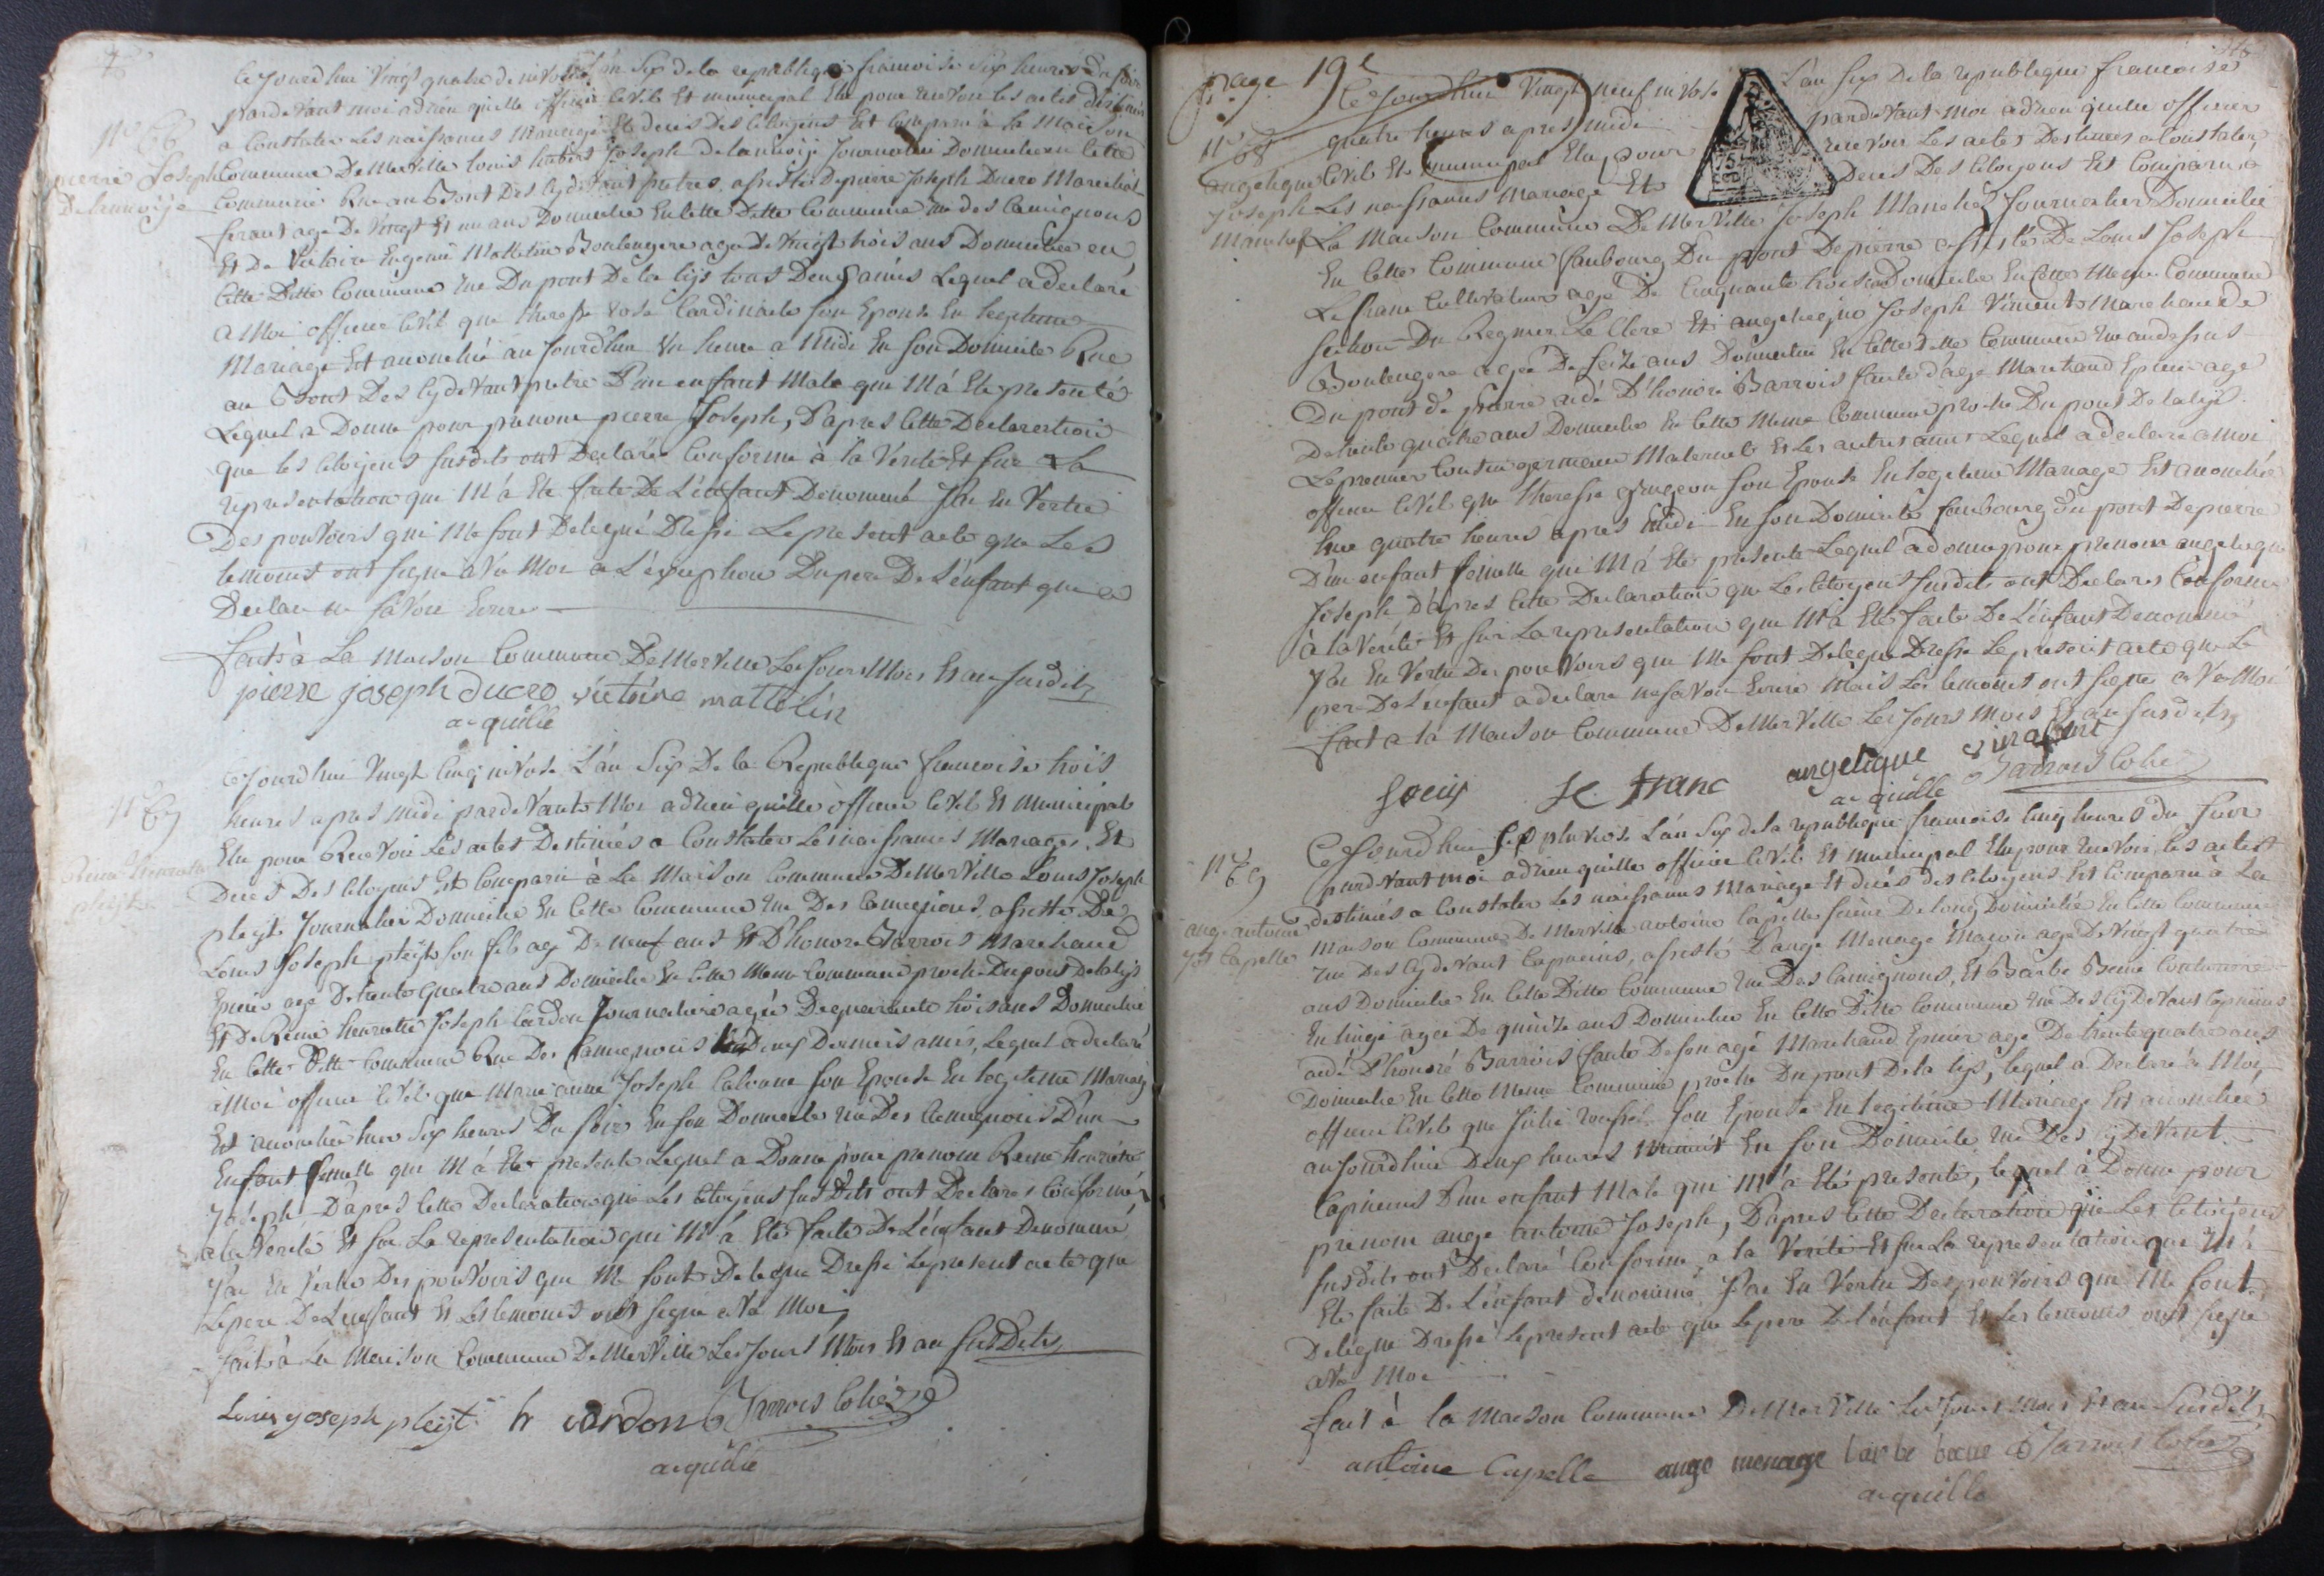 Ce Jourdhui Vingt quatre de nivose L'an Six de la republique francoise Six heures du soir
pardevant moi adrien quille officier Civil Et municipal Elu pour recevoir les actes destinés
a Constater les naissances Mariage Et deces des Citoyens Est Comparu à la Maison
N° 66
pierre Joseph
Delannoije
Commune De Merville Louis hubert Joseph delannoije Journalier Domicilié en Cette
Commune Rue au Bout Des Cydevant pretres, assisté De pierre Joseph Ducro Marechal
ferant agé De Vingt Et un ans Domicilie En Cette Dette Commune rue des Camignons
Et De Victoire Eugenie Mattelin Boulengere agé De Vingt trois ans Domiciliée en
Cette Dette Commune rue Du pont De la lijs tous Deux amis Lequel a declaré
a Moi officier Civil que therese rose Cardinaele Son Epouse En legitime
Mariage Est acouchée au Jourd'hui Un heure a Midi En son Domicile Rue
au Bout Des Cydevant pretre D'un enfant Male qui M'a Eté presenté
Lequel a Donné pour prenom pierre Joseph, D'apres Cette Declaration
que les Citoyens susdits ont Declarés Conforme à la Verité Et sur La
representation qui M'a Eté faite De L'enfant Denommé J'ai En Vertu
Des pouvoirs qui Me sont Delegué Dressé Le present acte que Les
temoins ont signé avec Moi a L'exception Du pere De L'enfant qui a
Declaré ne savoir Ecrire
fait à La Maison Commune De Merville Les Jours Mois Et an susdits
pierre joseph ducro victoire mattelin
a quille
N° 67
Reine henriette
pleijt
Ce Jourdhui Vingt Cinq nivose L'an Six De la Republique francoise trois
heures apres midi pardevant Moi adrien quille officier Civil Et Municipal
Elu pour Recevoir Les actes Destinés a Constater Les naissances Mariages Et
Deces Des Citoyens Est Comparu à La Maison Commune De Merville Louis Joseph
pleijt Journalier Domicilié En Cette Commune rue Des Camignons, assisté De
Louis Joseph pleijt son fils agé De neuf ans Et D'honoré Barrois Marchand
Epicier agé De trente quatre ans Domicilié En Cette Meme Commune proche Du pont De la lijs
Et De Reine henriette Joseph Cardon Journaliere agée De quarante trois ans Domiciliée
En Cette Dette Commune Rue Des Camignons les Deux Derniers amis, Lequel a declaré
a Moi officier Civil que Marie anne Joseph Calonne son Epouse En legitime Mariage
Est acouchée hier Six heures Du soir En son Domicile rue Des Camignons D'un
Enfant femelle qui M'a Eté presenté Lequel a Donné pour prenom Reine henriette
Joseph D'apres Cette Declaration que Les Citoyens susdits ont Declarés Conforme
a la Verité Et sur La representation qui M'a Eté faite De L'enfant Denommé
J'ai En Vertu Des pouvoirs qui Me sont Delegué Dressé Le present acte que
Le pere De L'enfant Et Les temoins ont signé avec Moi
fait à La Maison Commune De Merville Les Jours Mois Et an susdits
Louis joseph pleijt h cardon Barrois Cohez
a quille
page 19e
N° 68
angelique
Joseph
Manchez
Ce Jourdhui Vingt neuf nivose L'an Six De la republique francoise
quatre heures apres midi pardevant Moi adrien quille officier
Civil Et municipal Elu pour recevoir Les actes Destinés a Constater
Les naissances Mariage Et Deces Des Citoyens Est Comparu a
La Maison Commune De Merville Joseph Manchez Journalier Domicilié
En Cette Commune faubourg Du pont De pierre assisté De Louis Joseph
Le franc Cultivateur agé De Cinquante trois ans Domicilié En Cette Meme Commune
section Du Regnier Le Clerc Et angelique Joseph Viment Marchande
Boulengere agée De seize ans Domiciliée En Cette Dette Commune rue au dessus
Du pont de pierre aidé D'honoré Barrois faute d'age Marchand Epicier agé
De trente quatre ans Domicilié En Cette Meme Commune proche Du pont De la lijs
Le premier Cousin germain Maternel Et Les autres amis Lequel a declaré a moi
officier Civil que therese grugeon son Epouse En legitime Mariage Est acouchée
hier quatre heures apres Midi En son Domicile faubourg Du pont De pierre
D'un enfant femelle qui M'a Eté presenté Lequel a donné pour prenom angelique
Joseph, D'apres Cette Declaration que Les Citoyens susdits ont Declarés Conforme
à la Verité Et sur La representation qui M'a Eté faite De L'enfant Denommé
J'ai En Vertu Des pouvoirs qui Me sont Delegué Dressé Le present acte que Le
pere De L'enfant a declaré ne savoir Ecrire Mais Les temoins ont signé avec Moi
fait a la Maison Commune De Merville Les Jours Mois Et an susdits
Louis Le franc angelique vimant
a quille Barrois Cohez
N° 69
ange antoine
Jos Capelle
Ce Jourd'hui Six pluviose L'an Six de la republique francoise Cinq heures du soir
pardevant moi adrien quille officier Civil Et municipal Elu pour recevoir les actes
destinés a Constater Les naissances Mariage Et deces des Citoyens Est Comparu à La
Maison Commune De Merville antoine Capelle scieur De long Domicilié En Cette Commune
rue Des Cydevant Capucins, assisté D'ange Menage Maçon agé De Vingt quatre
ans Domicilié En Cette Dette Commune rue Des Camignons, Et Barbe Becue Couturiere
En linge agée De quinze ans Domiciliée En Cette Dette Commune rue Des Cydevant Capucins
aidé D'honoré Barrois faute De son agé Marchand Epicier agé De trente quatre ans
Domicilié En Cette Meme Commune proche Du pont De la lijs, lequel a Declaré à Moi
officier Civil que Julie roussel son Epouse En legitime Mariage Est acouchée
aujourd'hui Deux heures Minuit En son Domicile rue Des Cydevant
Capucins D'un enfant Male qui M'a Eté presenté, lequel à Donné pour
prenom ange antoine Joseph, D'apres Cette Declaration que Les Citoyens
susdits ont Declaré Conforme à la Verité Et sur La representation qui M'a
Eté faite De L'enfant denommé J'ai En Vertu Des pouvoirs qui Me sont
Delegué Dressé Le present acte que Le pere De l'enfant Et Les temoins ont signé
avec Moi
fait à la Maison Commune De Merville Les Jours Mois Et an susdits
antoine Capelle ange menage barbe becue Barrois Cohez
a quille